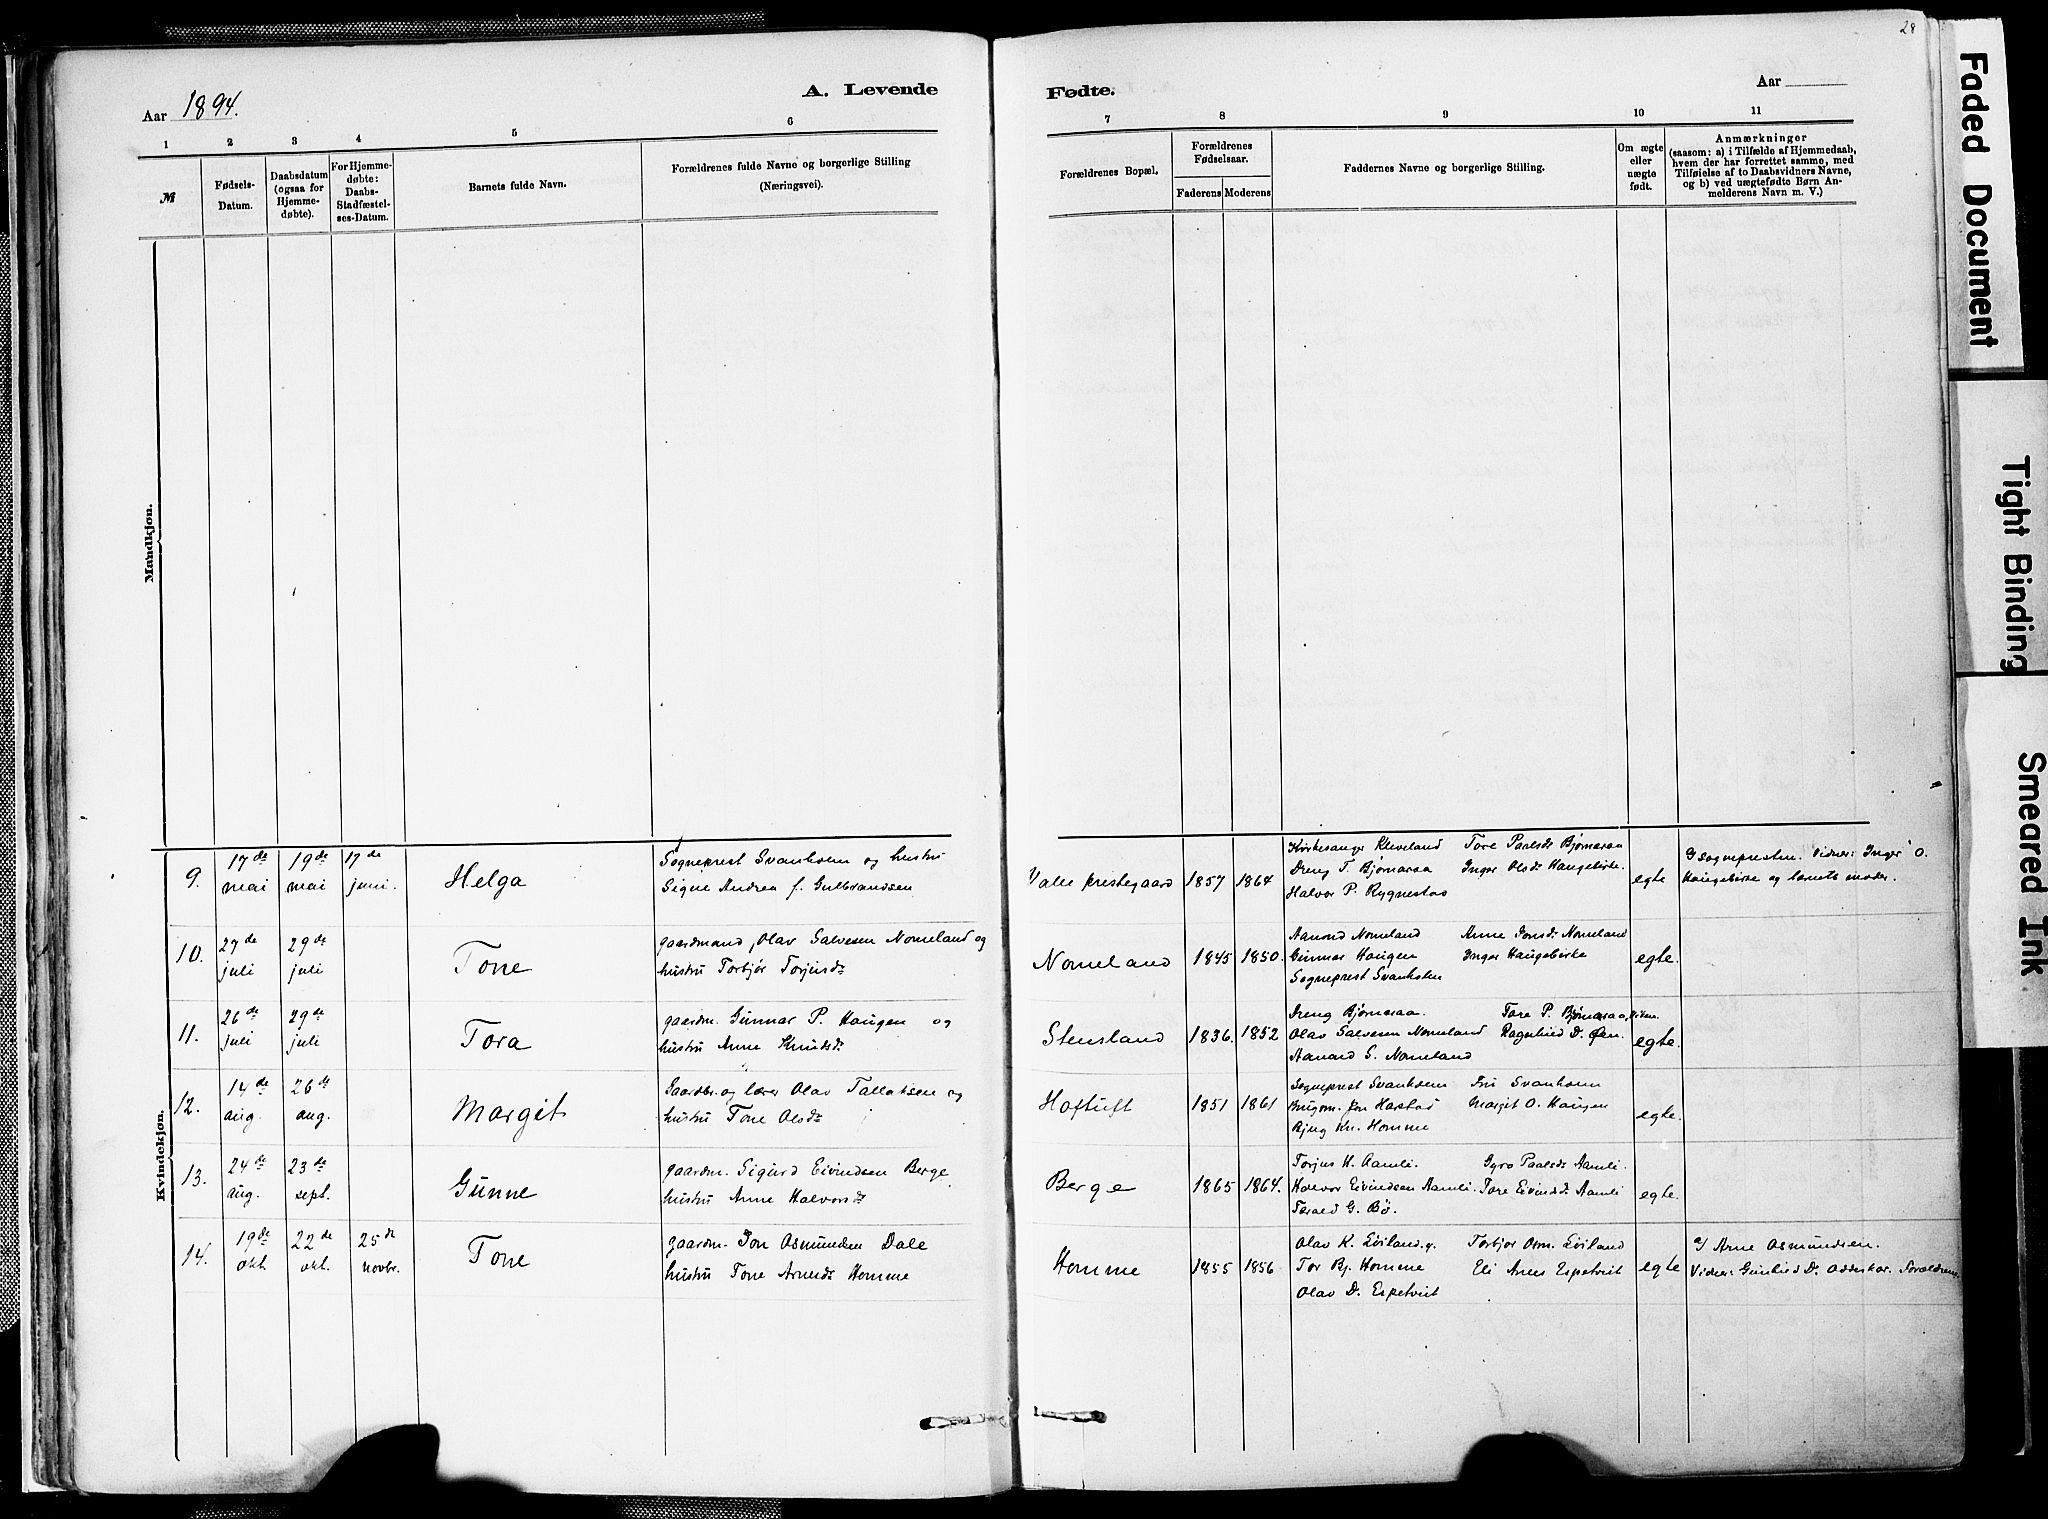 28
Aar 1894.
A. Levende
Fødte.
Aar
1 2 3 4 5 6
7 8 9 10 11
№
Fødsels-
Datum.
Daabsdatum
(ogsaa for
Hjemme-
døbte).
For Hjemme-
døbte:
Daabs-
Stadfæstel-
ses-Datum.
Barnets fulde Navn.
Forældrenes fulde Navne og borgerlige Stilling
(Næringsvei).
Forældrenes Bopæl.
Forældrenes
Fødselsaar.
Faderens
Moderens
Faddernes Navne og borgerlige Stilling.
Om ægte
eller
uægte
født.
Anmærkninger
(saasom: a) i Tilfælde af Hjemmedaab,
hvem der har forrettet samme, med
Tilføielse af to Daabsvidners Navne,
og b) ved uægtefødte Børn An-
melderens Navn m. V.)
Mandkjøn.
Kvindekjøn.
9.
17de
mai
19de
mai
17de
juni.
Helga
Sogneprest Svanholm og hustru
Signe Andrea f. Gulbrandsen
Valle prestegaard
1857
1864
Kirkesanger Kleveland Tore Paalsdr Bjørnaraa
Dreng T. Bjørnaraa Inger Olsdr Haugebirke.
Halvor P. Rygnestad
egte
Sognepresten. Vidner: Inger O.
Haugebirke og barnets moder.
10.
27de
juli
29de
juli
Tone
gaardmand, Olav Salvesen Nomeland og
hustru Torbjør Torjusdr
Nomeland
1845
1850.
Aanond Nomeland Anne Jonsdr Nomeland
Gunnar Haugen Inger Haugebirke
Sogneprest Svanholm
egte.
11.
26de
juli
29de
juli
Tora
gaardm. Gunnar P. Haugen og
hustru Anne Knudsdr
Stensland
1836.
1852
Dreng Bjørnaraa. Tore P. Bjørnaraa,
Olav Salvesen Nomeland Ragnhild D.
Aanond S. Nomeland
egte.
12.
14de
aug.
26de
aug.
Margit
Gaardbr. og lærer Olav Tallaksen og
hustru Tone Olsdr
Hoftuft
1851
1861
Sogneprest Svanholm Fru Svanholm
Jon Harstad Margit O. Haugen
Bjug Kn. Homme
egte.
13.
24de
aug.
23de
sept.
Gunne
gaardm. Sigurd Eivindsen Berge
hustru Anne Halvorsdr
Berge
1865
1864.
Torjus H. Aamli. Gyro Paalsdr Aamli.
Halvor Eivindsen Aamli. Tore Eivindsdr Aamli
Tarald G. Bø.
egte.
14.
19de
okt.
22de
okt.
25de
novbr.
Tone
gaardm. Jon Asmundsen Dale
hustru Tone Arnesdr Homme
Homme
1855
1856
Olav K. Eviland. Torbjør Asm. Eviland
Tor Bj. Homme Eli Arnes Espetveit
Olav D. Espetveit
egte
Arne Asmundsen.
Vidner: Gunhild D. Odderskar. Forældrene
Faded Document
Tight Binding
Smeared Ink